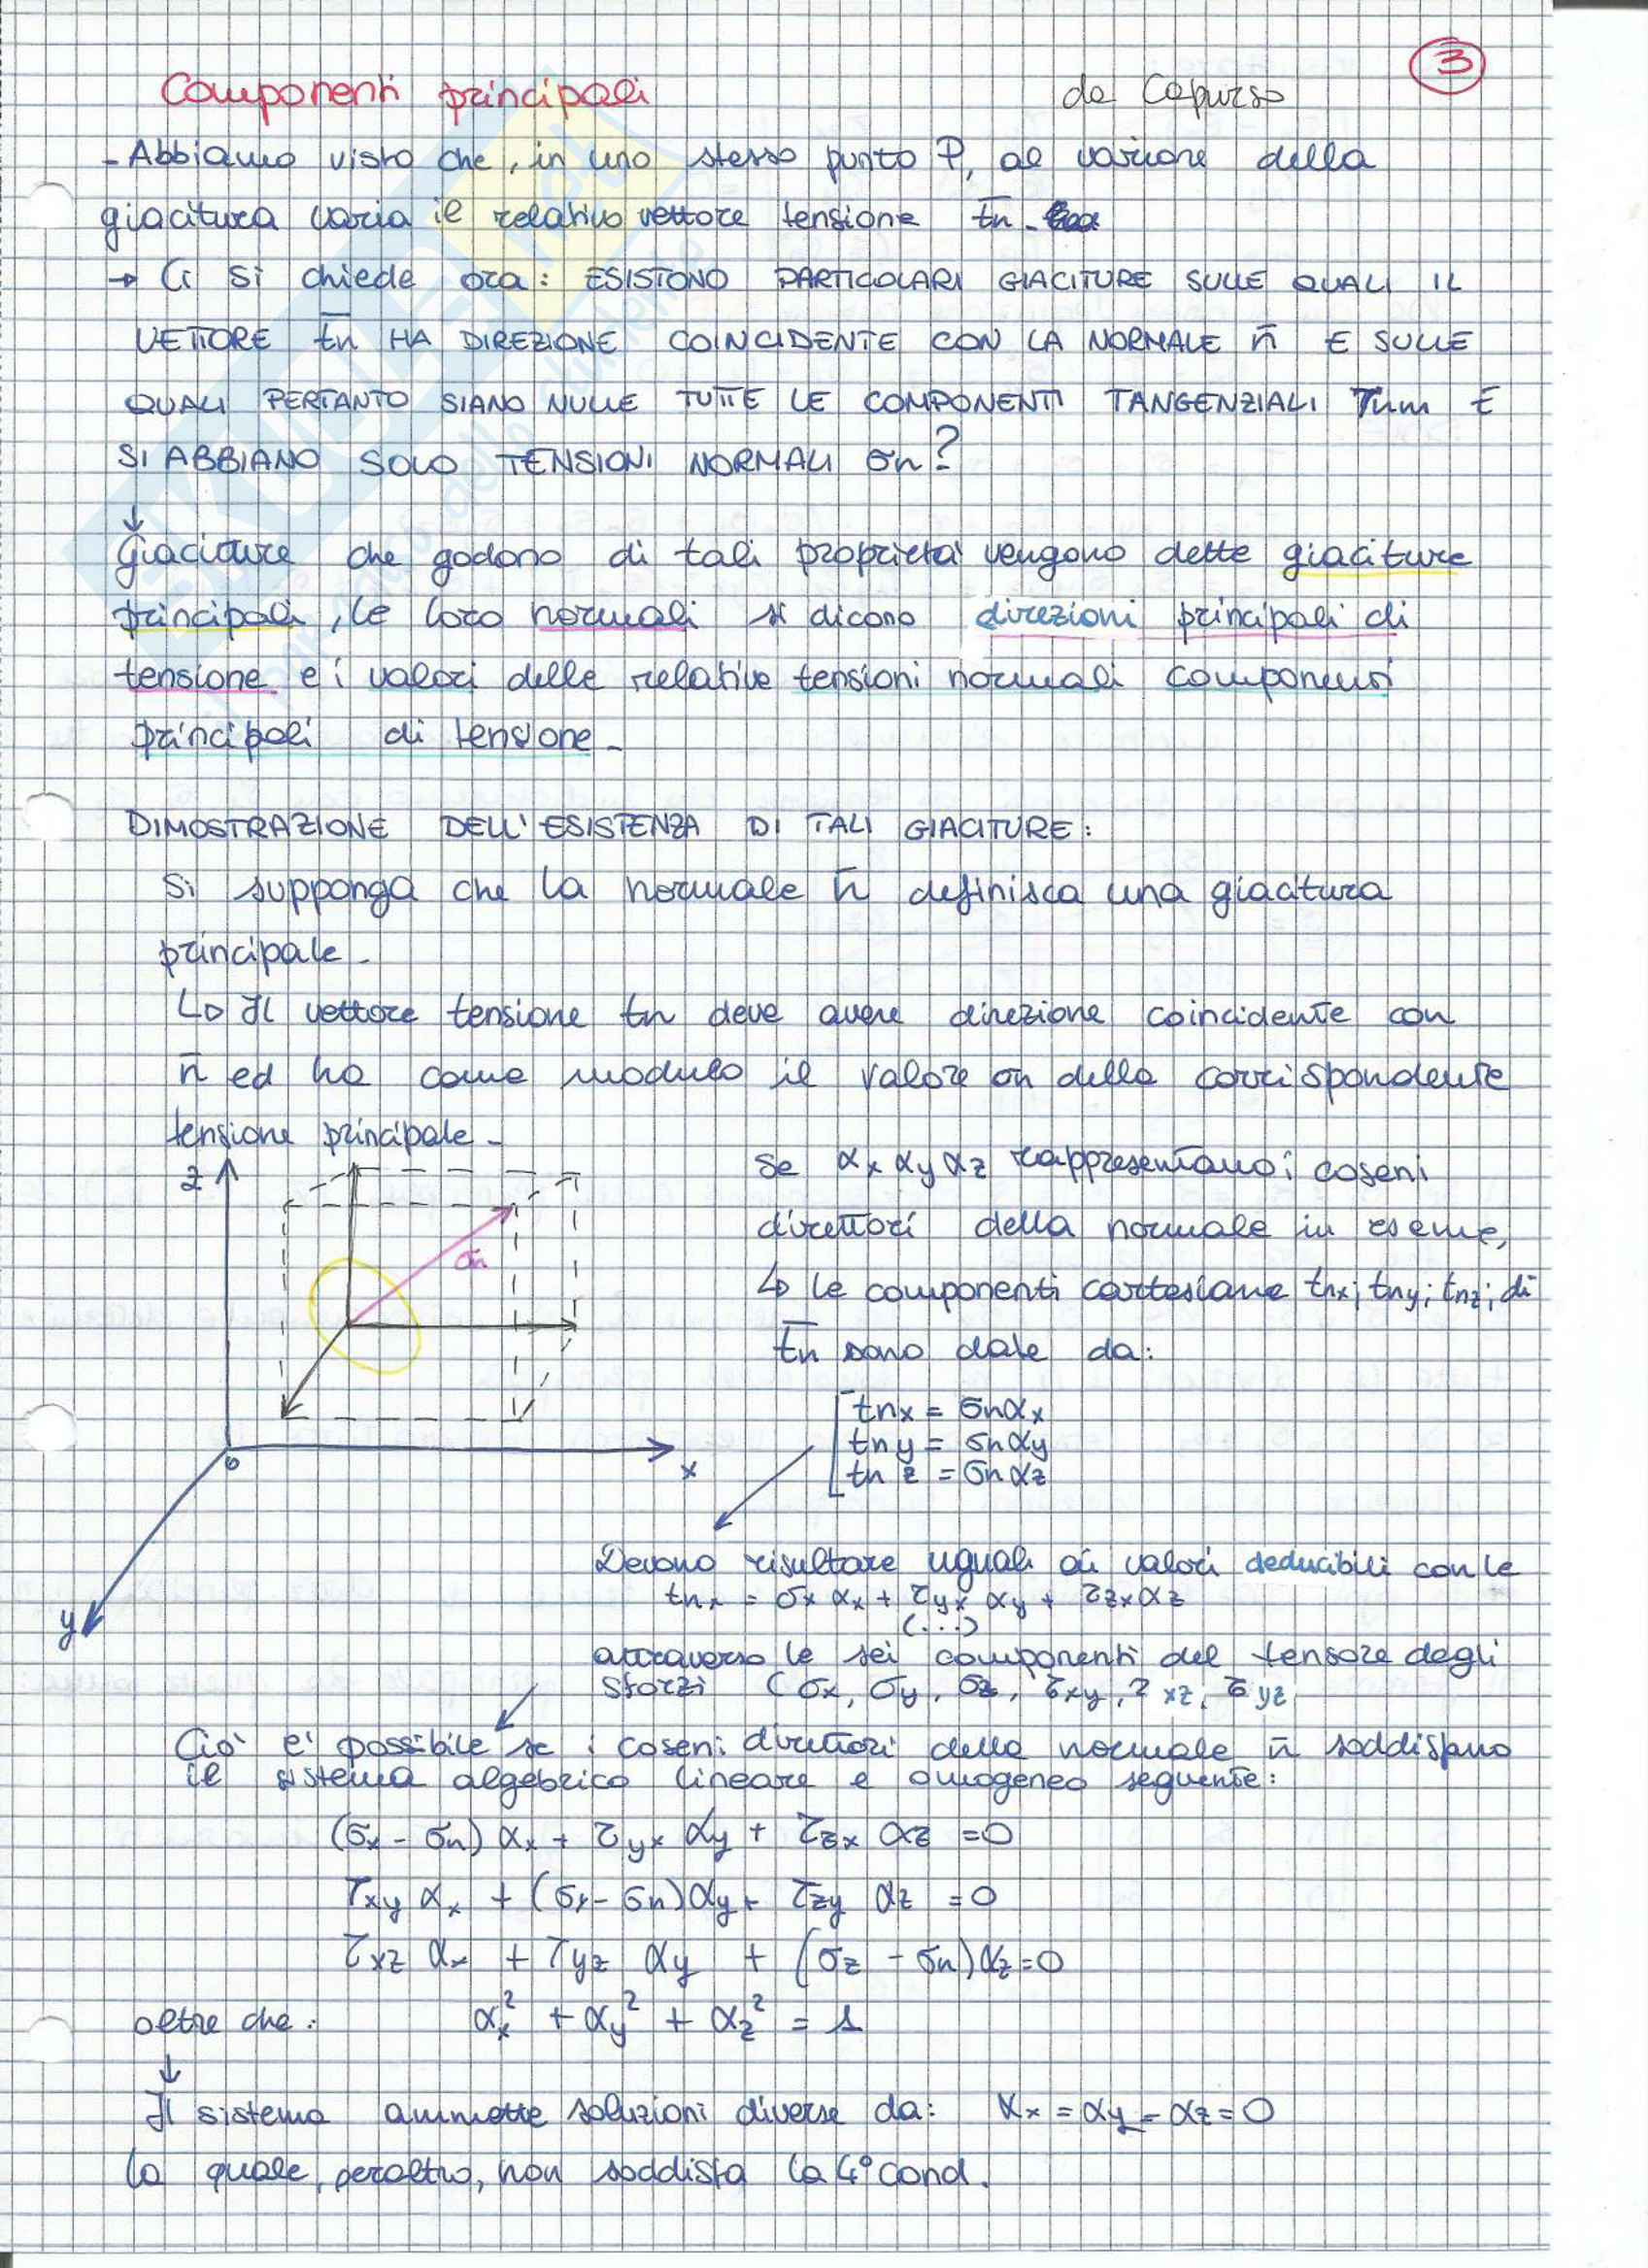 3
Componenti principali da Capurso
- Abbiamo visto che, in uno stesso punto P, al variare della
giacitura varia il relativo vettore tensione t̄n.
→ Ci si chiede ora: ESISTONO PARTICOLARI GIACITURE SULLE QUALI IL
VETTORE t̄n HA DIREZIONE COINCIDENTE CON LA NORMALE n̄ E SULLE
QUALI PERTANTO SIANO NULLE TUTTE LE COMPONENTI TANGENZIALI τnm E
SI ABBIANO SOLO TENSIONI NORMALI σn?
↓
Giaciture che godono di tali proprietà vengono dette giaciture
principali, le loro normali si dicono direzioni principali di
tensione e i valori delle relative tensioni normali componenti
principali di tensione.
DIMOSTRAZIONE DELL'ESISTENZA DI TALI GIACITURE:
Si supponga che la normale n̄ definisca una giacitura
principale.
↳ Il vettore tensione tn deve avere direzione coincidente con
n̄ ed ha come modulo il valore σn della corrispondente
tensione principale.
z
σn
o
x
y
Se αx αy αz rappresentano i coseni
direttori della normale in esame,
↳ le componenti cartesiane tnx; tny; tnz; di
t̄n sono date da:
tnx = σnαx
tny = σnαy
tnz = σnαz
Devono risultare uguali ai valori deducibili con le
tnx = σx αx + τyx αy + τzx αz
(...)
attraverso le sei componenti del tensore degli
sforzi (σx, σy, σz, τxy, τxz, τyz
Ciò e' possibile se i coseni direttori della normale n̄ soddisfano
il sistema algebrico lineare e omogeneo seguente:
(σx - σn) αx + τyx αy + τzx αz = 0
τxy αx + (σy - σn)αy + τzy αz = 0
τxz αx + τyz αy + (σz - σn)αz = 0
oltre che: αx² + αy² + αz² = 1
↓
Il sistema ammette soluzioni diverse da: αx = αy = αz = 0
la quale, peraltro, non soddisfa la 4° cond.